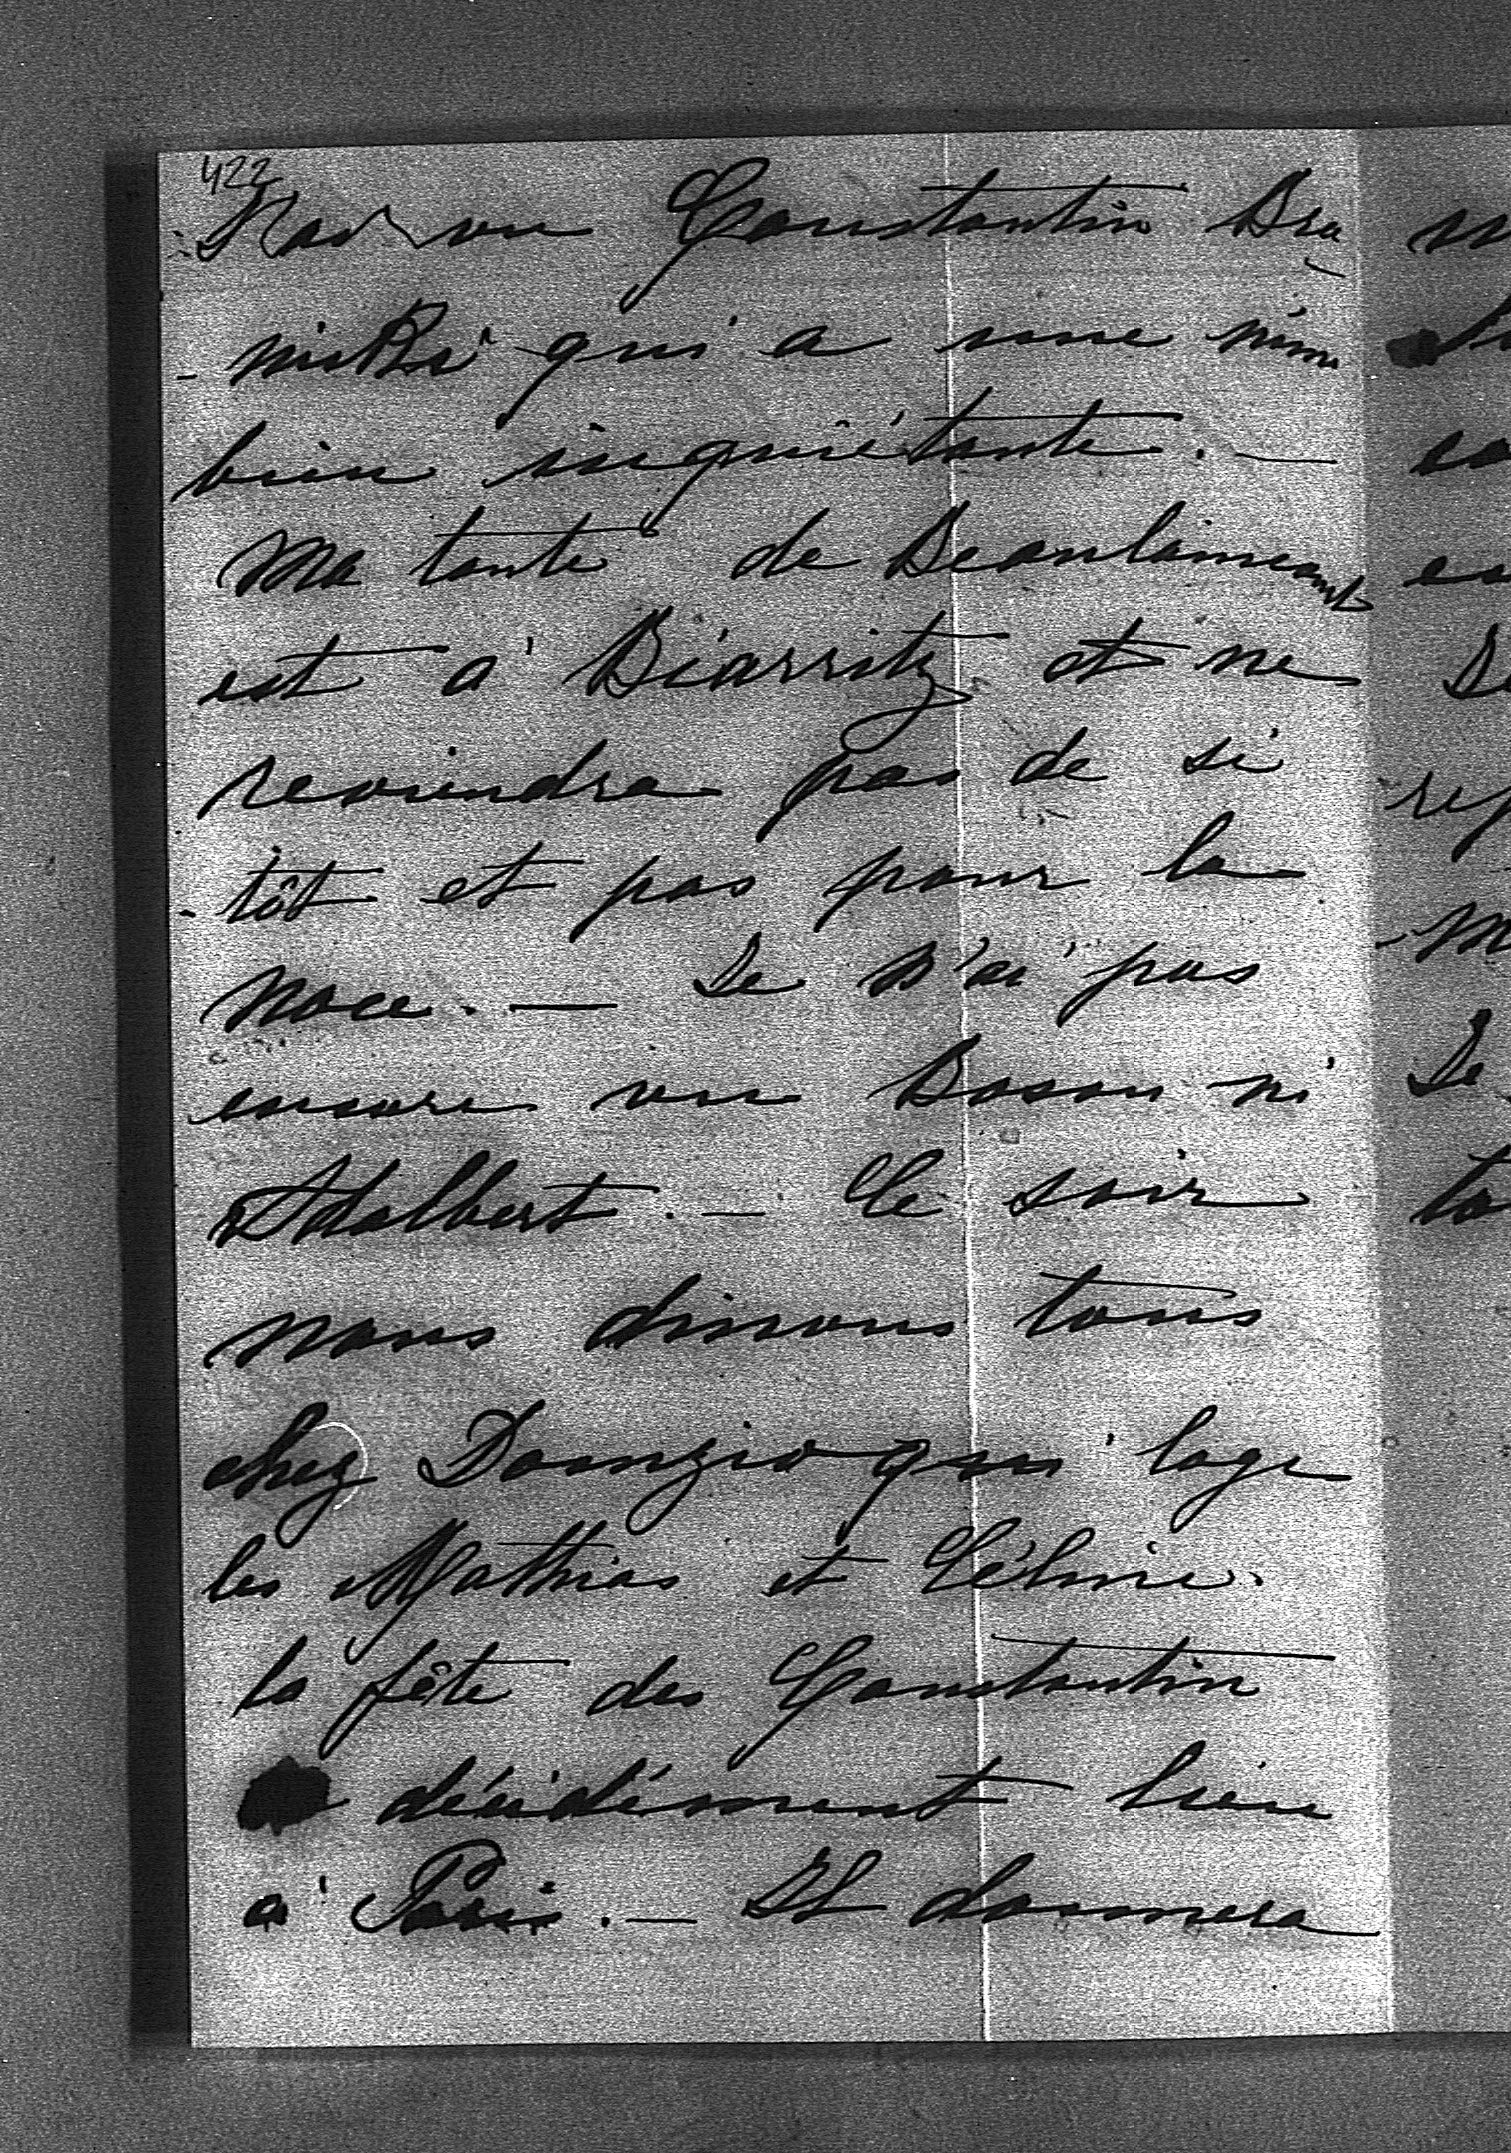 422
J'ai vu Constantin Bra
nicki qui a une mine
bien inquiétante. —
Ma tante de Beaulaincourt
est à Biarritz et ne
reviendra pas de si
tôt et pas pour la
noce. — Je n'ai pas
encore vu Boson ni
Adalbert. — Ce soir
nous dinons tous
chez Domzio qui loge
les Mathias et Céline.
la fête des Constantin
décidément lieu
à Paris. — Il donnera